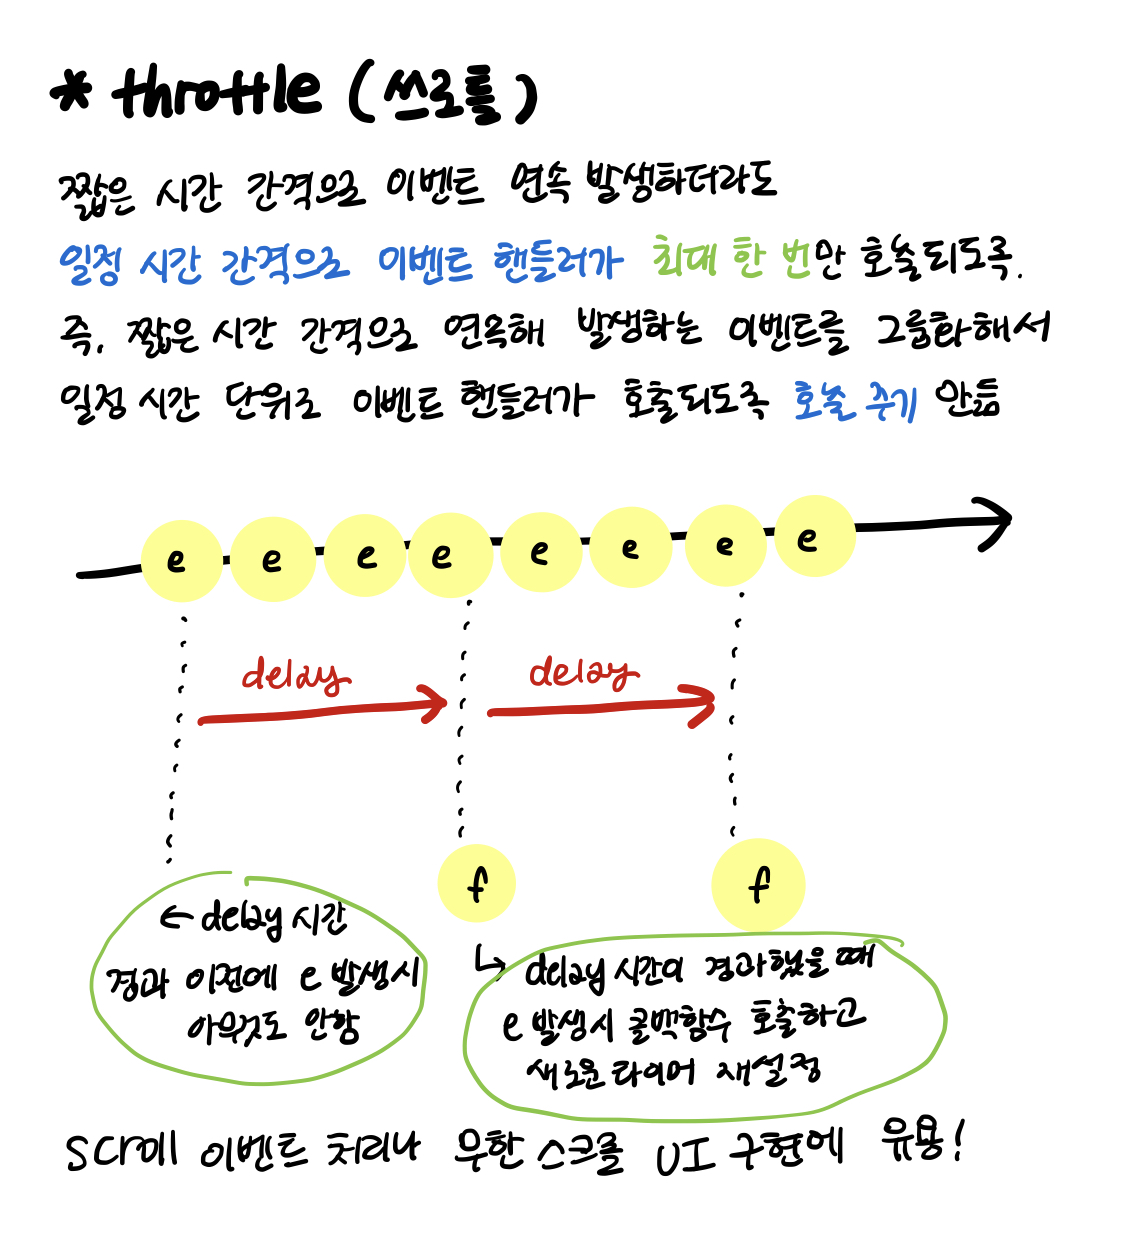 * throttle (쓰로틀)
짧은 시간 간격으로 이벤트 연속 발생하더라도
일정 시간 간격으로 이벤트 핸들러가 최대 한 번만 호출되도록.
즉, 짧은 시간 간격으로 연속해 발생하는 이벤트를 그룹화해서
일정 시간 단위로 이벤트 핸들러가 호출되도록 호출 주기 만듦
e e e e e e e e
delay delay
f f
← delay 시간
경과 이전에 e 발생시
아무것도 안함
↳ delay 시간이 경과했을 때
e 발생시 콜백함수 호출하고
새로운 타이머 재설정
scroll 이벤트 처리나 무한 스크롤 UI 구현에 유용!